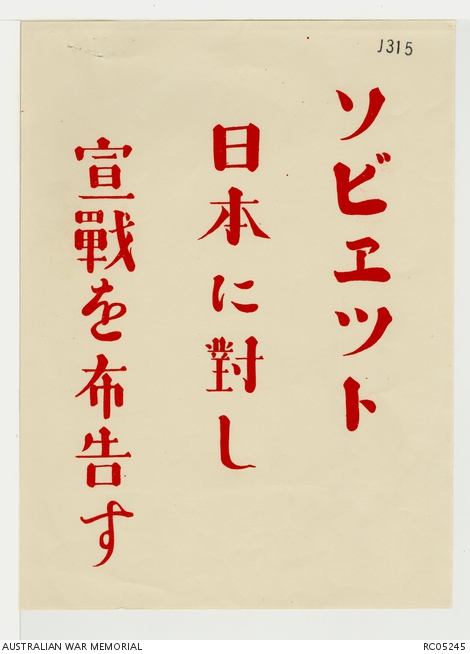 J315
ソビヱツト
日本に對し
宣戰を布告す
AUSTRALIAN WAR MEMORIAL
RC05245